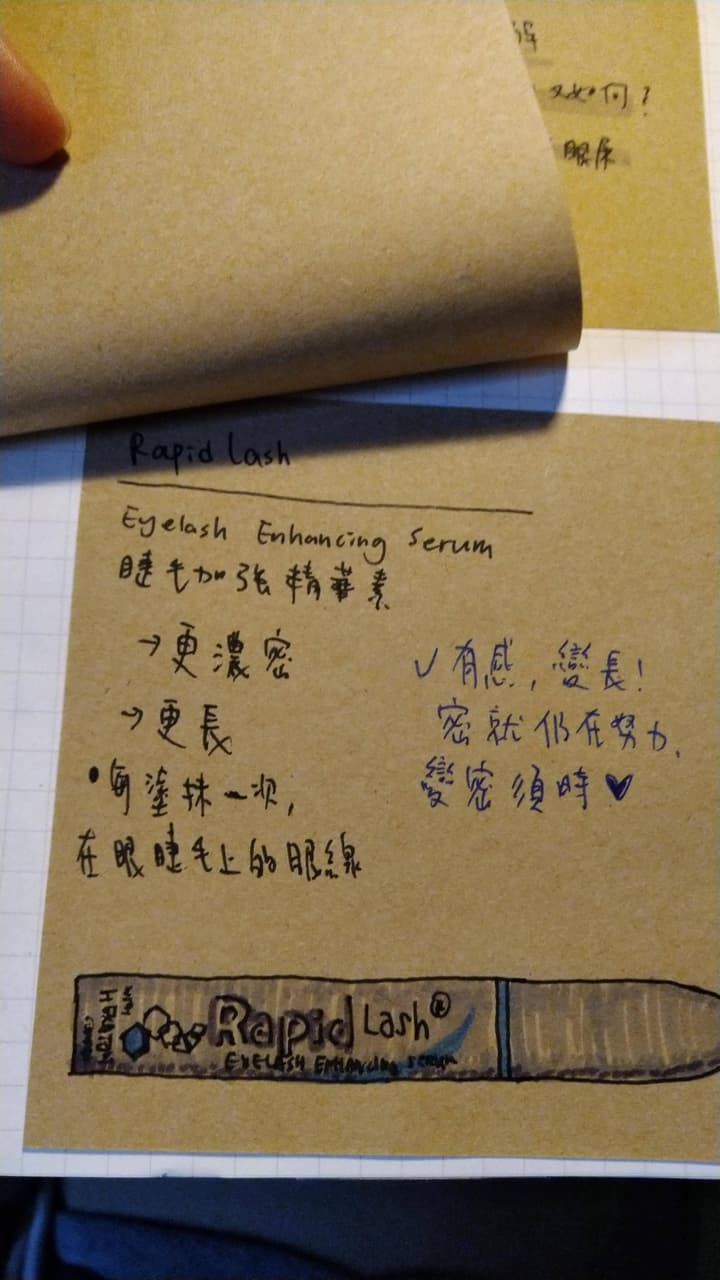 又如何?
眼尿
Rapid Lash
Eyelash Enhancing Serum
睫毛加張精華素
→更濃密
→更長
•每塗抹一次,
在眼睫毛上的眼線
✓有感, 變長!
密就仍在努力,
變密須時♥
Rapid Lash®
EYELASH ENHANCING SERUM